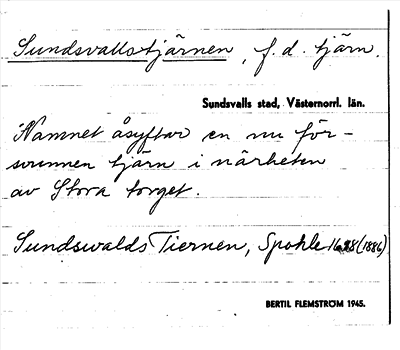 Sundsvallstjärnen, f. d. tjärn.
Sundsvalls stad, Västernorrl. län.
Namnet åsyftar en nu för-
svunnen tjärn i närheten
av Stora torget.
Sundswalds Tiernen, Spohle (1886)
BERTIL FLEMSTRÖM 1945.